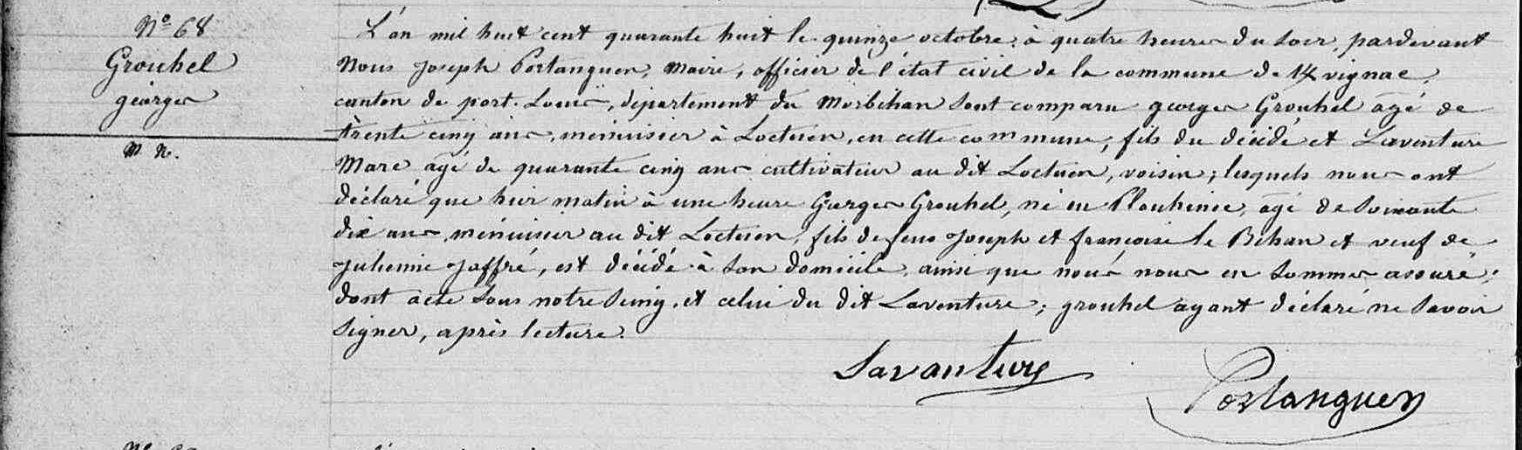 N° 68
Grouhel
georges
M. N.
L'an mil huit cent quarante huit le quinze octobre, à quatre heures du soir, pardevant
Nous Joseph Postanguen, Maire, officier de l'état civil de la commune de Kvignac,
canton de port-Louis, département du Morbihan sont comparu georges Grouhel agé de
trente cinq ans, ménuisier à Loctuen, en cette commune, fils du décédé et Laventure
Marc agé de quarante cinq ans cultivateur au dit Loctuen, voisin; lesquels nous ont
déclaré que hier matin à une heure Georges Grouhel, né en Plouhinec, agé de soixante
dix ans, ménuisier au dit Loctuen, fils de feus Joseph et françoise le Bihan et veuf de
Julienne Jaffré, est décédé à son domicile, ainsi que nous nous en sommes assuré;
dont acte sous notre seing, et celui du dit Laventure; grouhel ayant déclaré ne savoir
signer, après lecture.
Lavanture
Postanguen